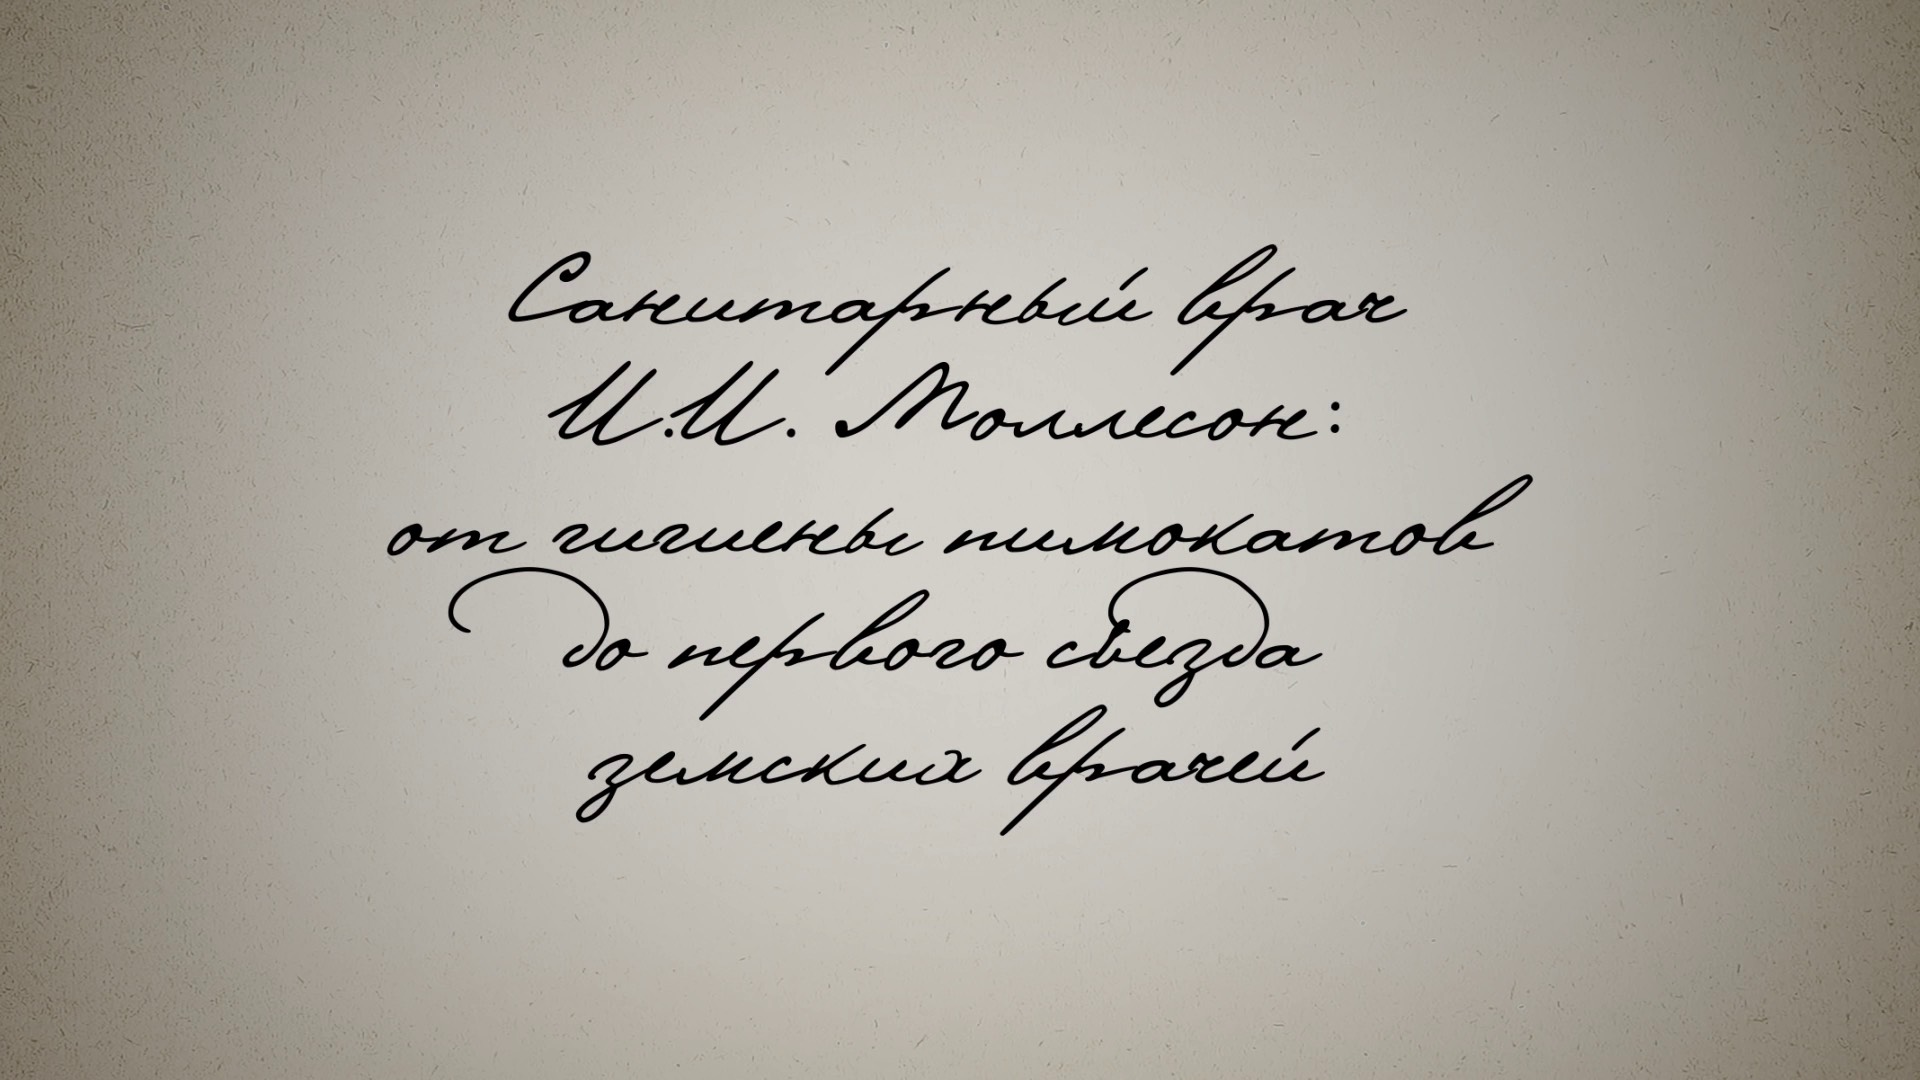 Санитарный врач
И.И. Моллесон:
от гигиены пимокатов
до первого съезда
земских врачей